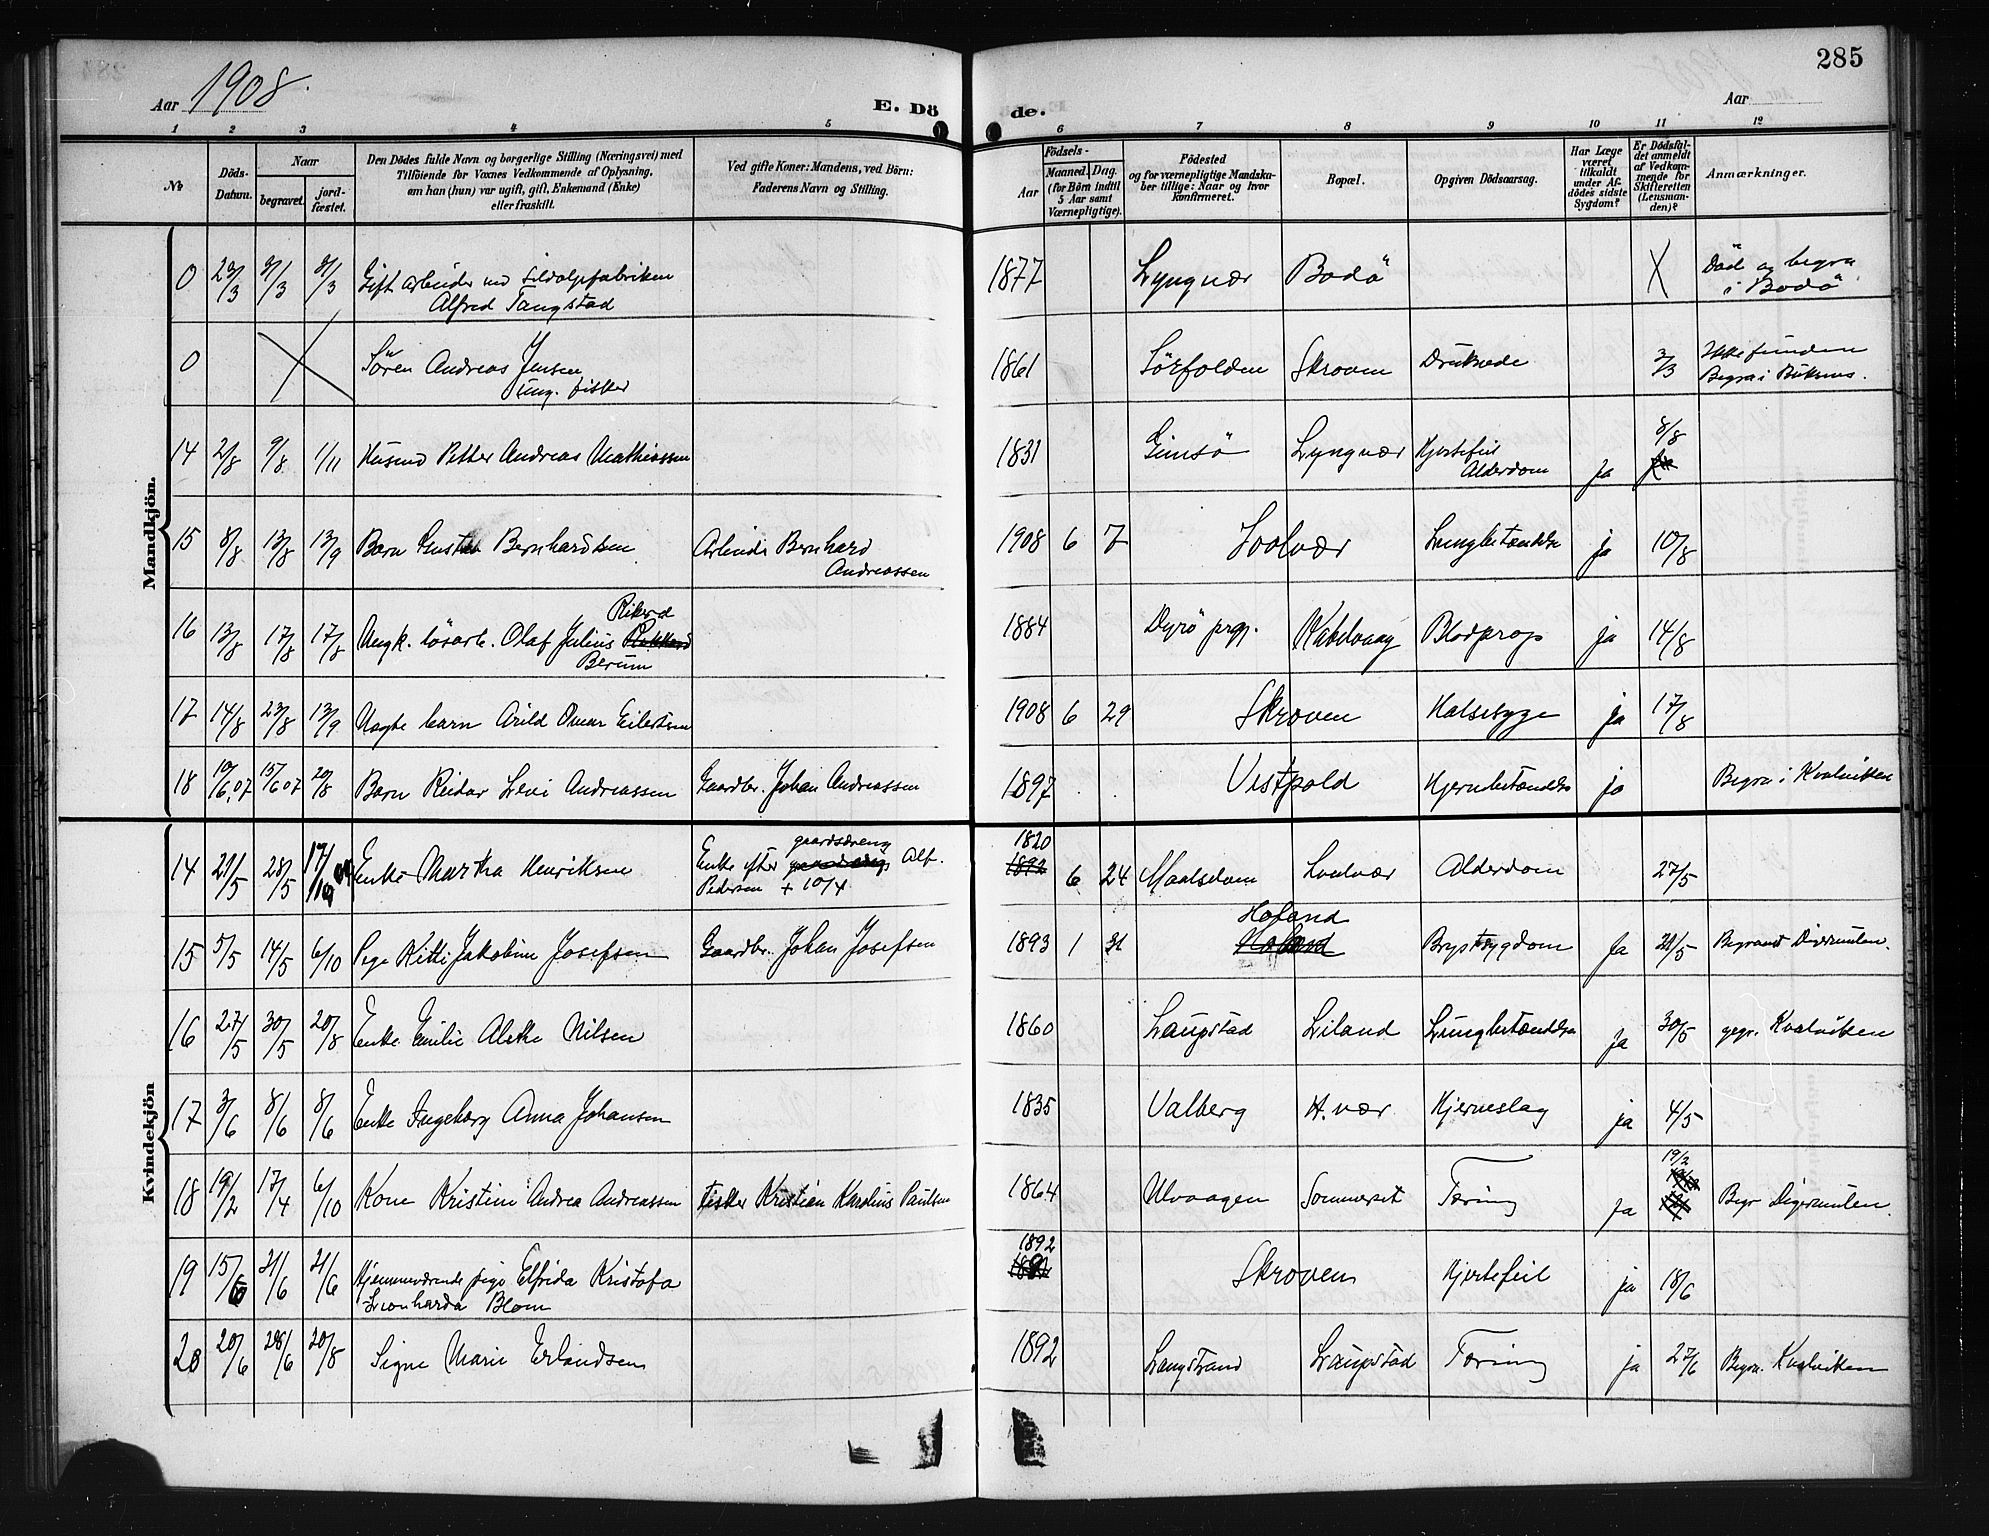 285
Aar 1908.
E. Dö
de.
Aar
1 2 3 4 5 6 7 8 9 10 11 12
No
Döds-
Datum.
Naar
begravet.
jord-
fæstet.
Den Dödes fulde Navn og borgerlige Stilling (Næringsvei) med
Tilföiende for Voxnes Vedkommende af Oplysning,
om han (hun) var ugift, gift, Enkemand (Enke)
eller fraskilt.
Ved gifte Koner: Mandens, ved Börn:
Faderens Navn og Stilling.
Födsels-
Aar
Maaned. Dag.
(for Börn indtil
5 Aar samt
Værnepligtige).
Födested
og for værnepligtige Mandska-
ber tillige: Naar og hvor
konfirmeret.
Bopæl.
Opgiven Dödsaarsag.
Har Læge
været
tilkaldt
under Af-
dödes sidste
Sygdom?
Er Dödsfal-
det anmeldt
af Vedkom-
mende for
Skifteretten
(Lensman-
den)?
Anmærkninger.
Mandkjön.
0 23/3 3/3 Gift arbeider ved Sildoljefabriken 1877 Lyngvær Bodö X Död og begra
Alfred Tangstad i Bodö
0 Sören Andreas Jensen 1861 Sörfolden Skroven Druknede 3/3 Ikke funden
Ung. fisker Begra i Buksnes.
14 2/8 9/8 1/11 Husmd Petter Andreas Mathiassen 1831 Gimsö Lyngvær Hjertefeil 8/8
Alderdom Ja
15 8/8 13/8 13/9 Barn Gustav Bernhardsen Arbeider Bernhard 1908 6 7 Svolvær Lungebetændelse ja 10/8
Andreassen
Rikard
16 13/8 17/8 17/8 Ungk. lösarb. Olaf Julius 1884 Dyrö prgj. Kabelvaag Blodprop ja 14/8
Berum
17 14/8 23/8 13/9 Uægte barn Arild Omar Eilertsen 1908 6 29 Skroven Halsesyge ja 17/8
18 10/6.07 15/6 07 20/8 Barn Reidar Levi Andreassen Gaardbr. Johan Andreassen 1897 Vestpold Hjernebetændelse ja Begra i Kvalviken
Kvindekjön
gaardsdreng 1820
14 21/5 28/5 17/10 Enke Martha Henriksen Enke efter Alf. 1892 6 24 Maalselven Svolvær Alderdom 27/5
Pedersen + 10/4
Holand
15 5/5 14/5 6/10 Pige Kitti Jakobine Josefsen Gaardbr. Johan Josefsen 1893 1 31 Holand Brystsygdom Ja 21/5 Begravet Digermulen.
16 27/5 30/5 20/8 Enke Emilie Aletke Nilsen 1860 Laupstad Liland Lungebetændelse Ja 30/5 gegr. Kvalviken
17 3/6 8/6 8/6 Enke Ingeborg Anna Johansen 1835 Valberg H. vær Hjerneslag ja 4/5
19/2
18 19/2 17/4 6/10 Kone Kristine Andrea Andreassen Fisker Kristian Karolius Paulsen 1864 Ulvaagen Sommerset Tæring Ja Begr Digermulen.
1892
19 15/6 21/6 21/6 Hjemmeværende pige Elfrida Kristofa Skroven Hjertefeil ja 18/6
Leonharda Blom
20 20/6 28/6 20/8 Signe Marie Erlandsen 1892 Langstrand Laupstad Tæring ja 27/6 Begra. Kvalviken